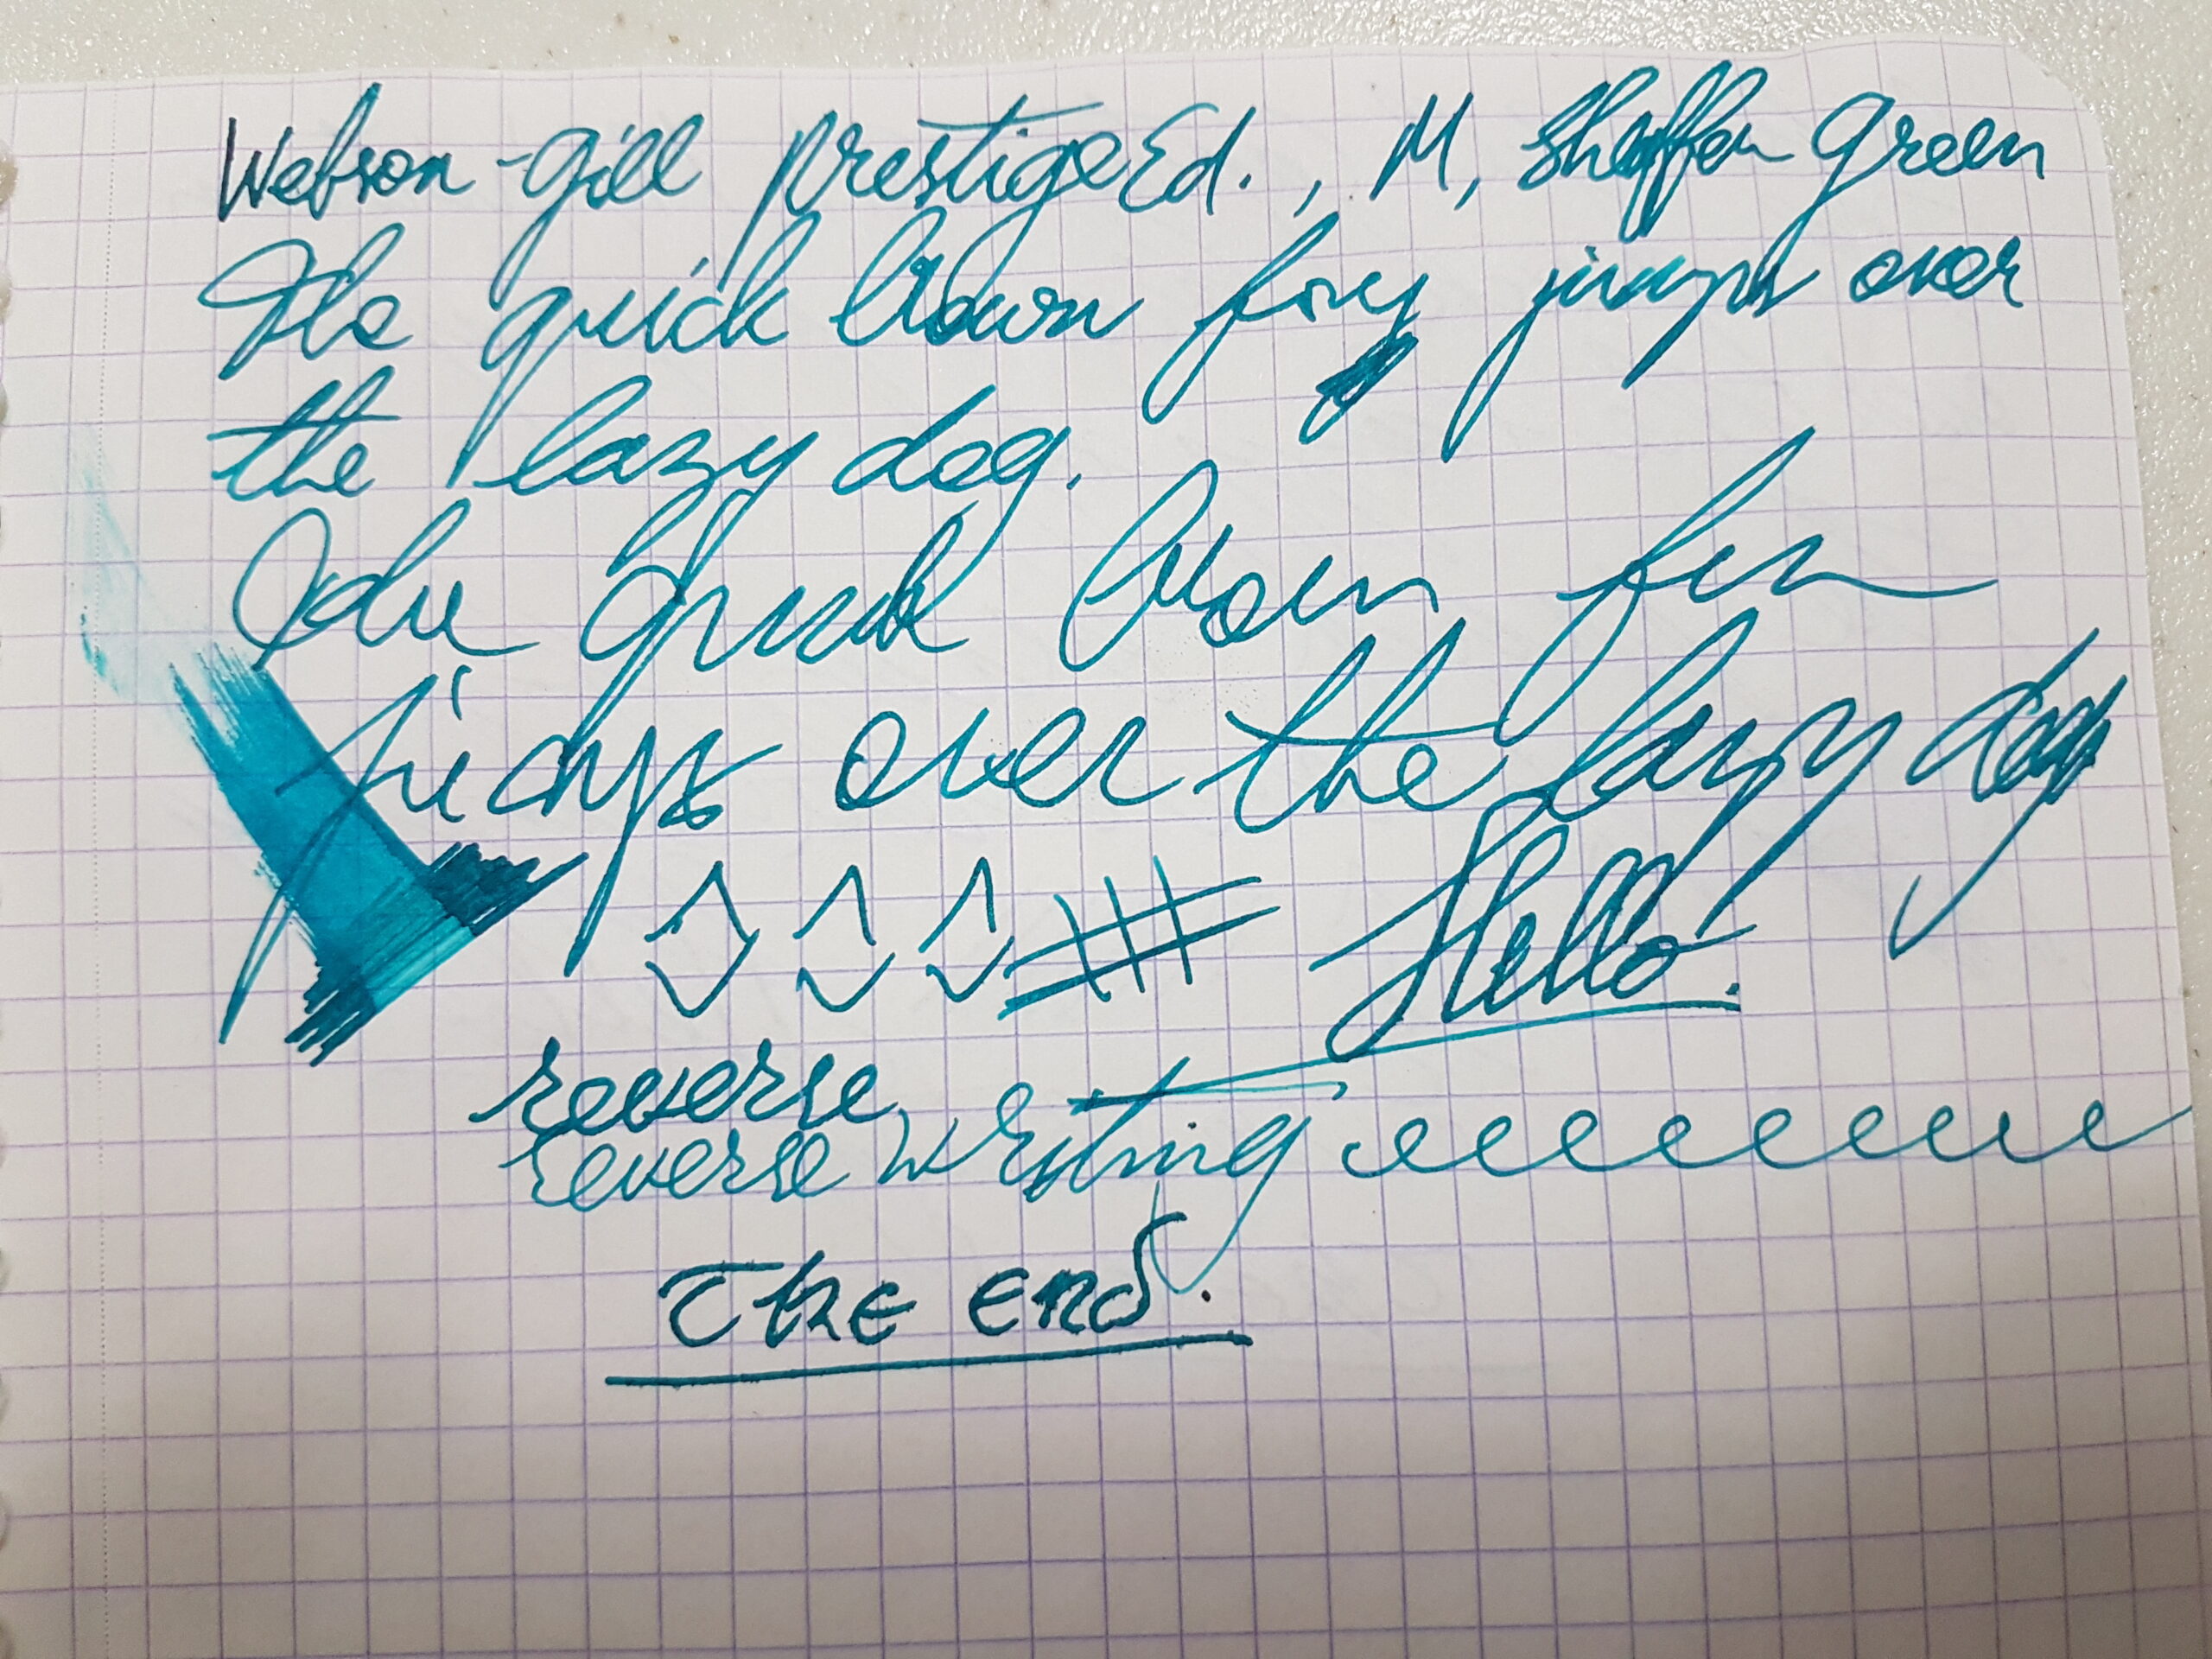 Webson-gill PrestigeEd., M, Sheffer Green
The quick brown foxy jumps over
the lazy dog.
The Quick brown fox
jumps over the lazy dog
Hello.
reverse
reverse writing eeeeeeee
The end.